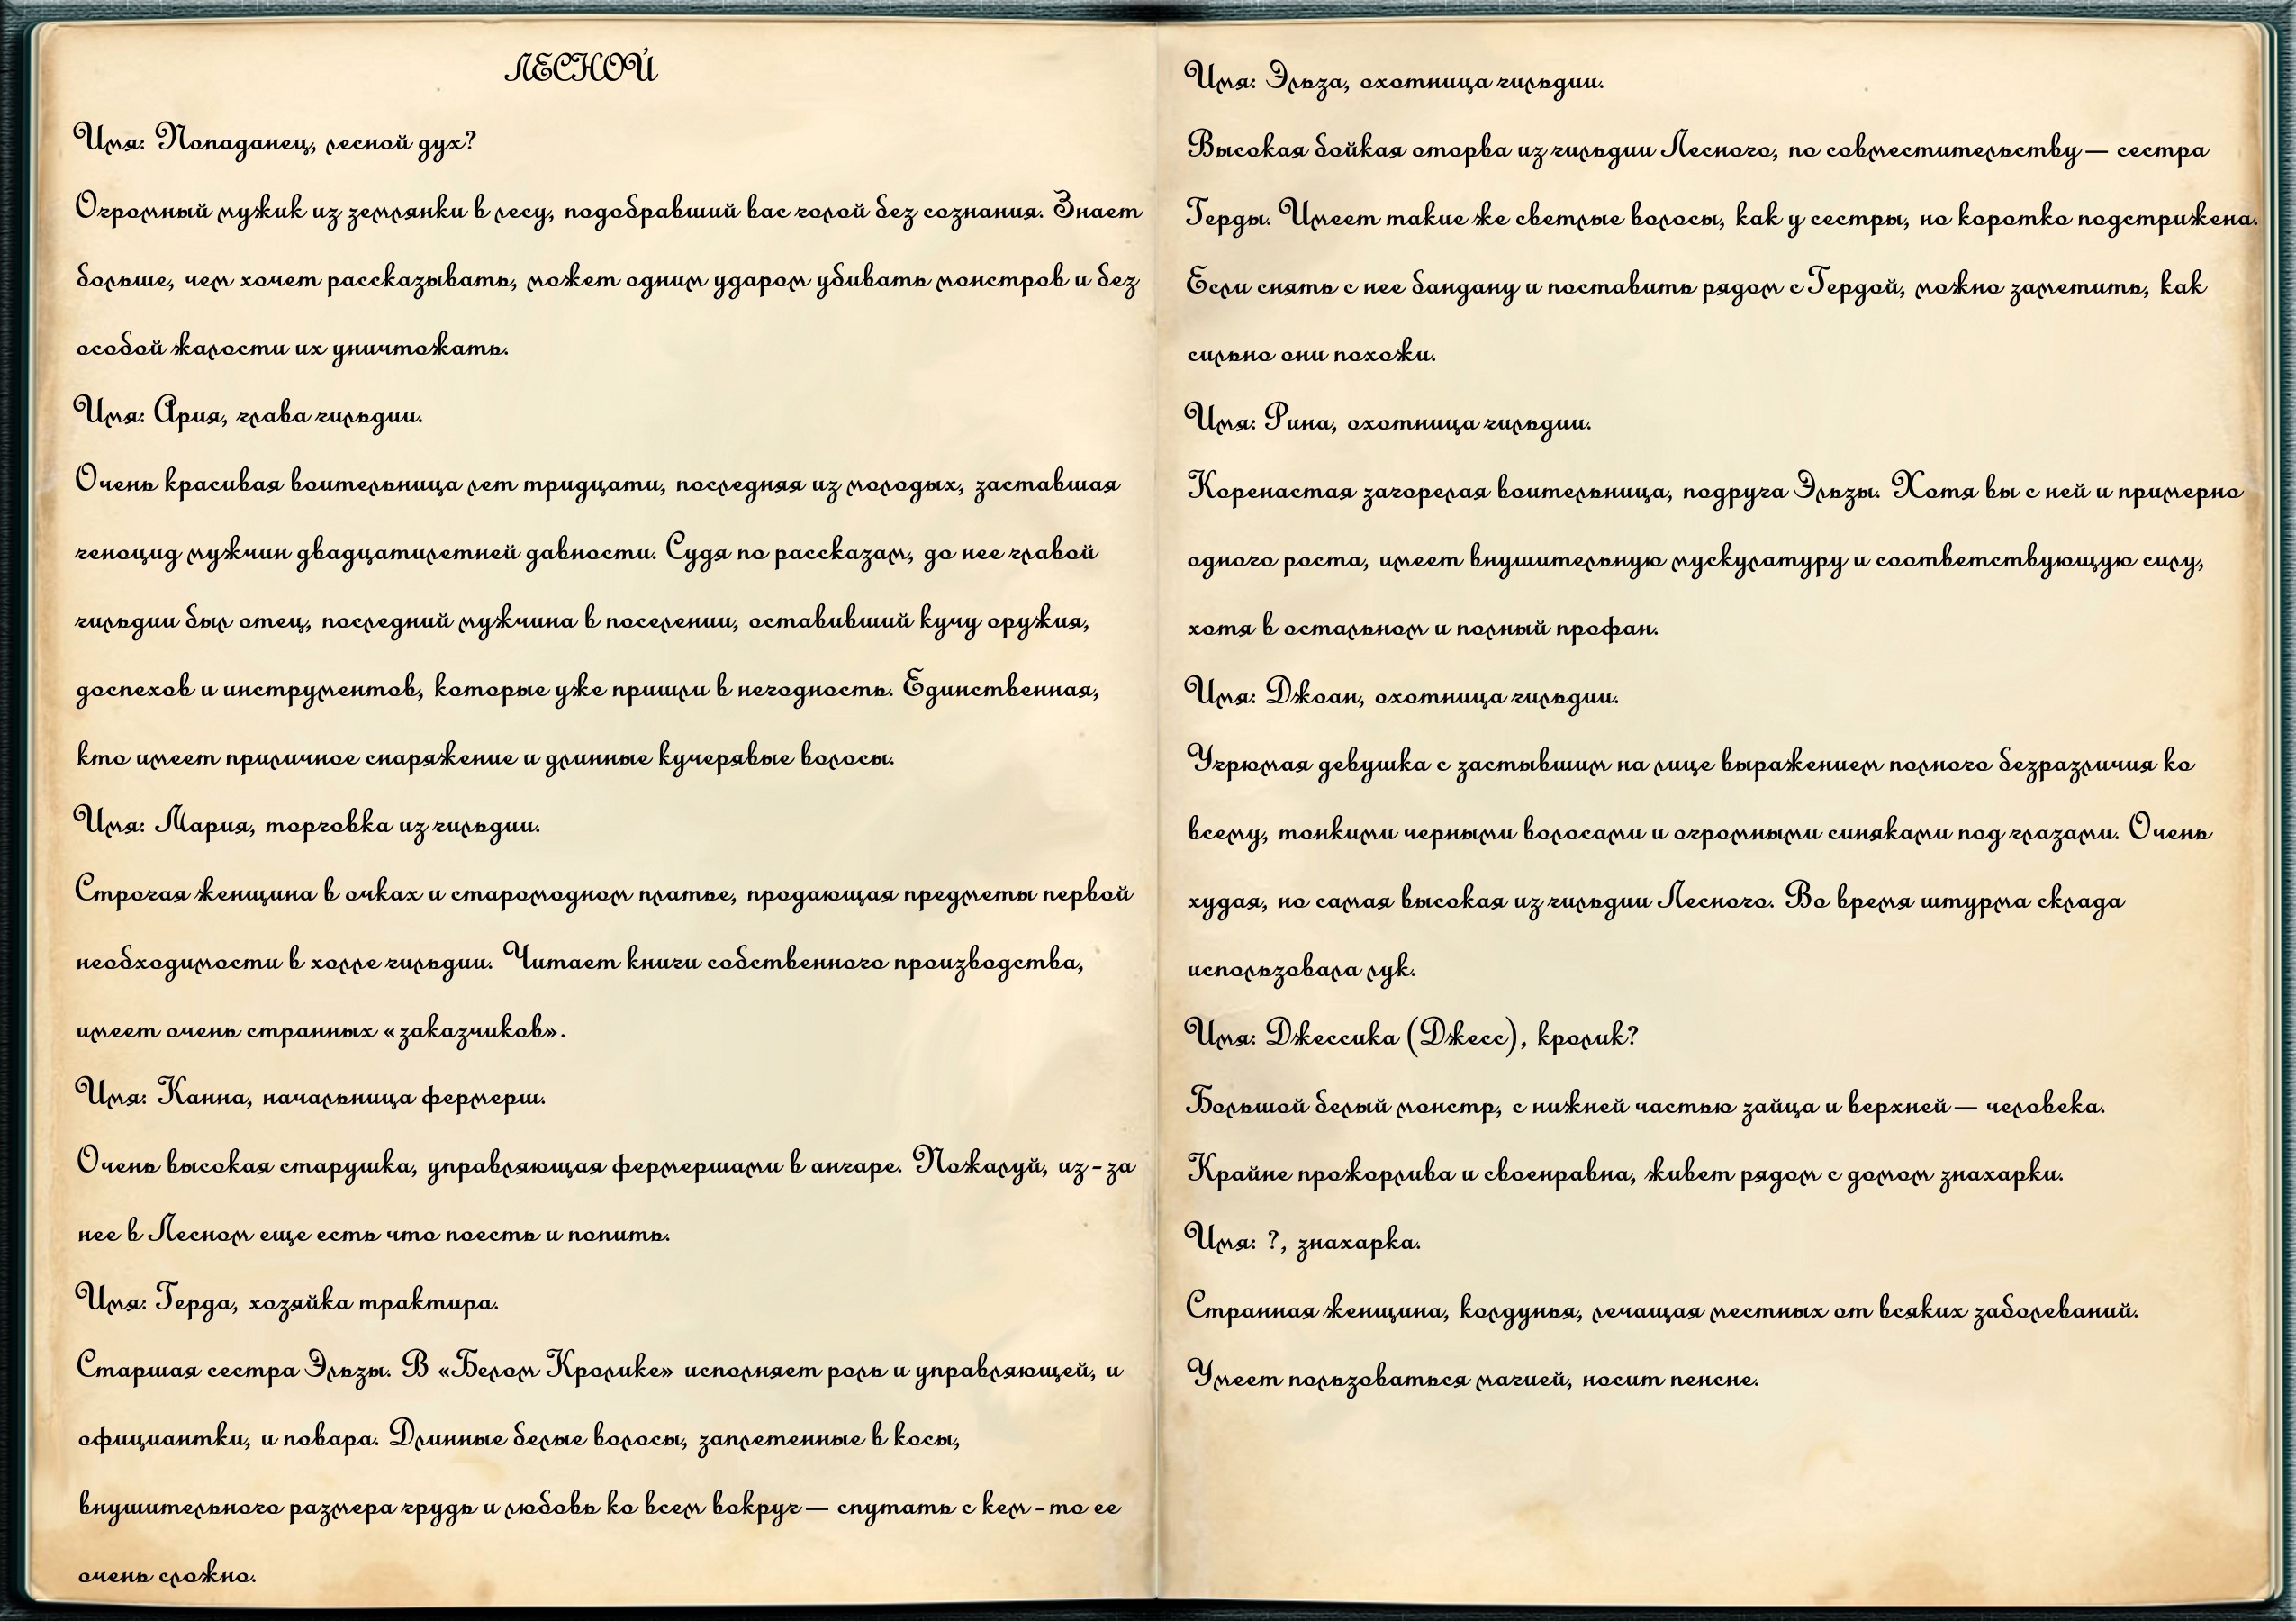 ЛЕСНОЙ
Имя: Попаданец, лесной дух?
Огромный мужик из землянки в лесу, подобравший вас голой без сознания. Знает
больше, чем хочет рассказывать, может одним ударом убивать монстров и без
особой жалости их уничтожать.
Имя: Ария, глава гильдии.
Очень красивая воительница лет тридцати, последняя из молодых, заставшая
геноцид мужчин двадцатилетней давности. Судя по рассказам, до нее главой
гильдии был отец, последний мужчина в поселении, оставивший кучу оружия,
доспехов и инструментов, которые уже пришли в негодность. Единственная,
кто имеет приличное снаряжение и длинные кучерявые волосы.
Имя: Мария, торговка из гильдии.
Строгая женщина в очках и старомодном платье, продающая предметы первой
необходимости в холле гильдии. Читает книги собственного производства,
имеет очень странных «заказчиков».
Имя: Канна, начальница фермерш.
Очень высокая старушка, управляющая фермершами в ангаре. Пожалуй, из-за
нее в Лесном еще есть что поесть и попить.
Имя: Герда, хозяйка трактира.
Старшая сестра Эльзы. В «Белом Кролике» исполняет роль и управляющей, и
официантки, и повара. Длинные белые волосы, заплетенные в косы,
внушительного размера грудь и любовь ко всем вокруг — спутать с кем-то ее
очень сложно.
Имя: Эльза, охотница гильдии.
Высокая бойкая оторва из гильдии Лесного, по совместительству — сестра
Герды. Имеет такие же светлые волосы, как у сестры, но коротко подстрижена.
Если снять с нее бандану и поставить рядом с Гердой, можно заметить, как
сильно они похожи.
Имя: Рина, охотница гильдии.
Коренастая загорелая воительница, подруга Эльзы. Хотя вы с ней и примерно
одного роста, имеет внушительную мускулатуру и соответствующую силу,
хотя в остальном и полный профан.
Имя: Джоан, охотница гильдии.
Угрюмая девушка с застывшим на лице выражением полного безразличия ко
всему, тонкими черными волосами и огромными синяками под глазами. Очень
худая, но самая высокая из гильдии Лесного. Во время штурма склада
использовала лук.
Имя: Джессика (Джесс), кролик?
Большой белый монстр, с нижней частью зайца и верхней — человека.
Крайне прожорлива и своенравна, живет рядом с домом знахарки.
Имя: ?, знахарка.
Странная женщина, колдунья, лечащая местных от всяких заболеваний.
Умеет пользоваться магией, носит пенсне.